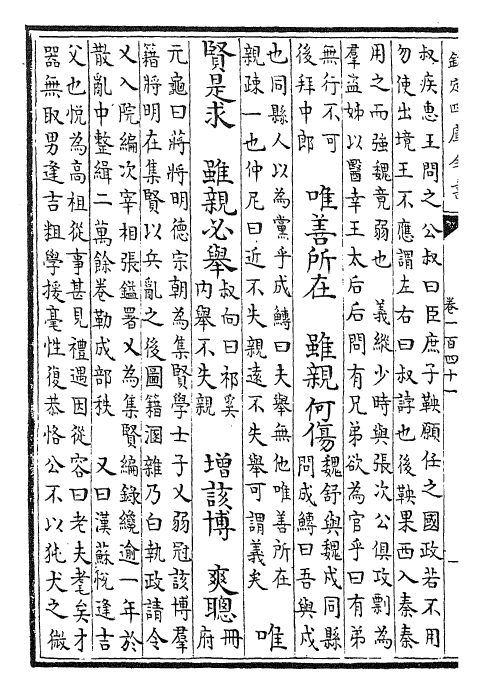 欽定四庫全書
卷一百四十一
一
叔疾惠王問之公叔曰臣庶子鞅願任之國政若不用
勿使出境王不應謂左右曰叔誖也後鞅果西入秦秦
用之而強魏竟弱也　義縱少時與張次公俱攻剽為
羣盗姊以醫幸王太后后問有兄弟欲為官乎曰有弟
無行不可
後拜中郎
唯善所在　雖親何傷
魏舒與魏戍同縣
問成鱄曰吾與戍
也同縣人以為黨乎成鱄曰夫舉無他唯善所在
親疎一也仲尼曰近不失親遠不失舉可謂義矣
唯
賢是求　雖親必舉
叔向曰祁奚
内舉不失親
增該博　爽聰
冊
府
元龜曰蔣將明德宗朝為集賢學士子乂弱冠該博羣
籍將明在集賢以兵亂之後圖籍溷雜乃白執政請令
乂入院編次宰相張鎰署乂為集賢編錄纔逾一年於
散亂中整緝二萬餘卷勒成部秩　又曰漢蘇悅逢吉
父也悅為高祖從事甚見禮遇因從容曰老夫耄矣才
器無取男逢吉粗學援毫性復恭恪公不以㹠犬之微